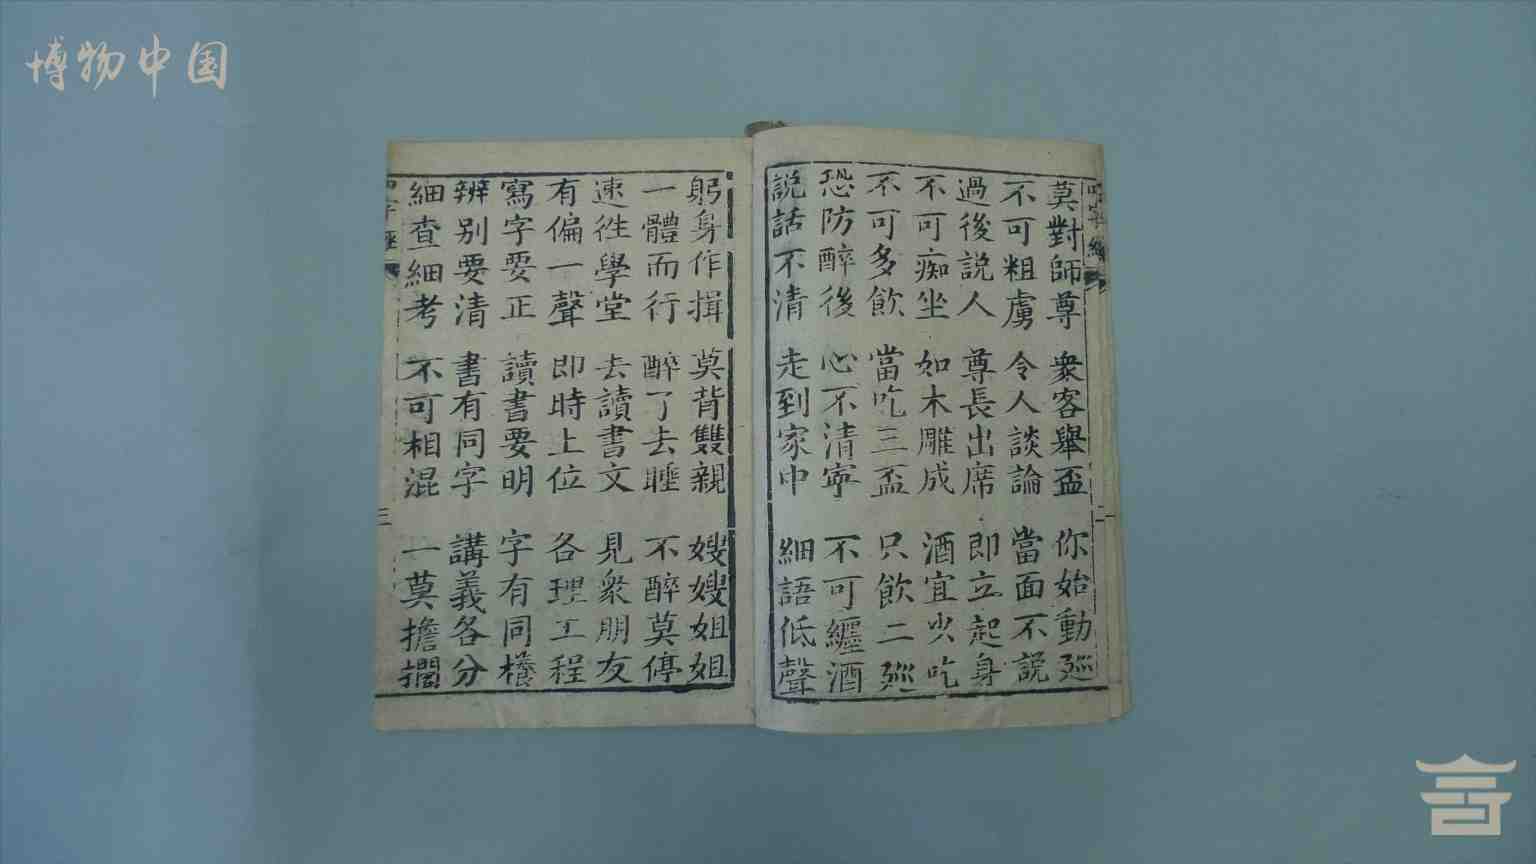 博物中国
四字經
莫對師尊 衆客舉盃 你始動廵
不可粗虜 令人談論 當面不説
過後説人 尊長出席 即立起身
不可痴坐 如木雕成 酒宜少吃
不可多飲 當吃三盃 只飲二廵
恐防醉後 心不清寧 不可纒酒
説話不清 走到家中 細語低聲
躬身作揖 莫背雙親 嫂嫂姐姐
一體而行 醉了去睡 不醉莫停
速徃學堂 去讀書文 見衆朋友
有偏一聲 即時上位 各理工程
寫字要正 讀書要明 字有同樣
辨别要清 書有同字 講義各分
細查細考 不可相混 一莫擔擱
三